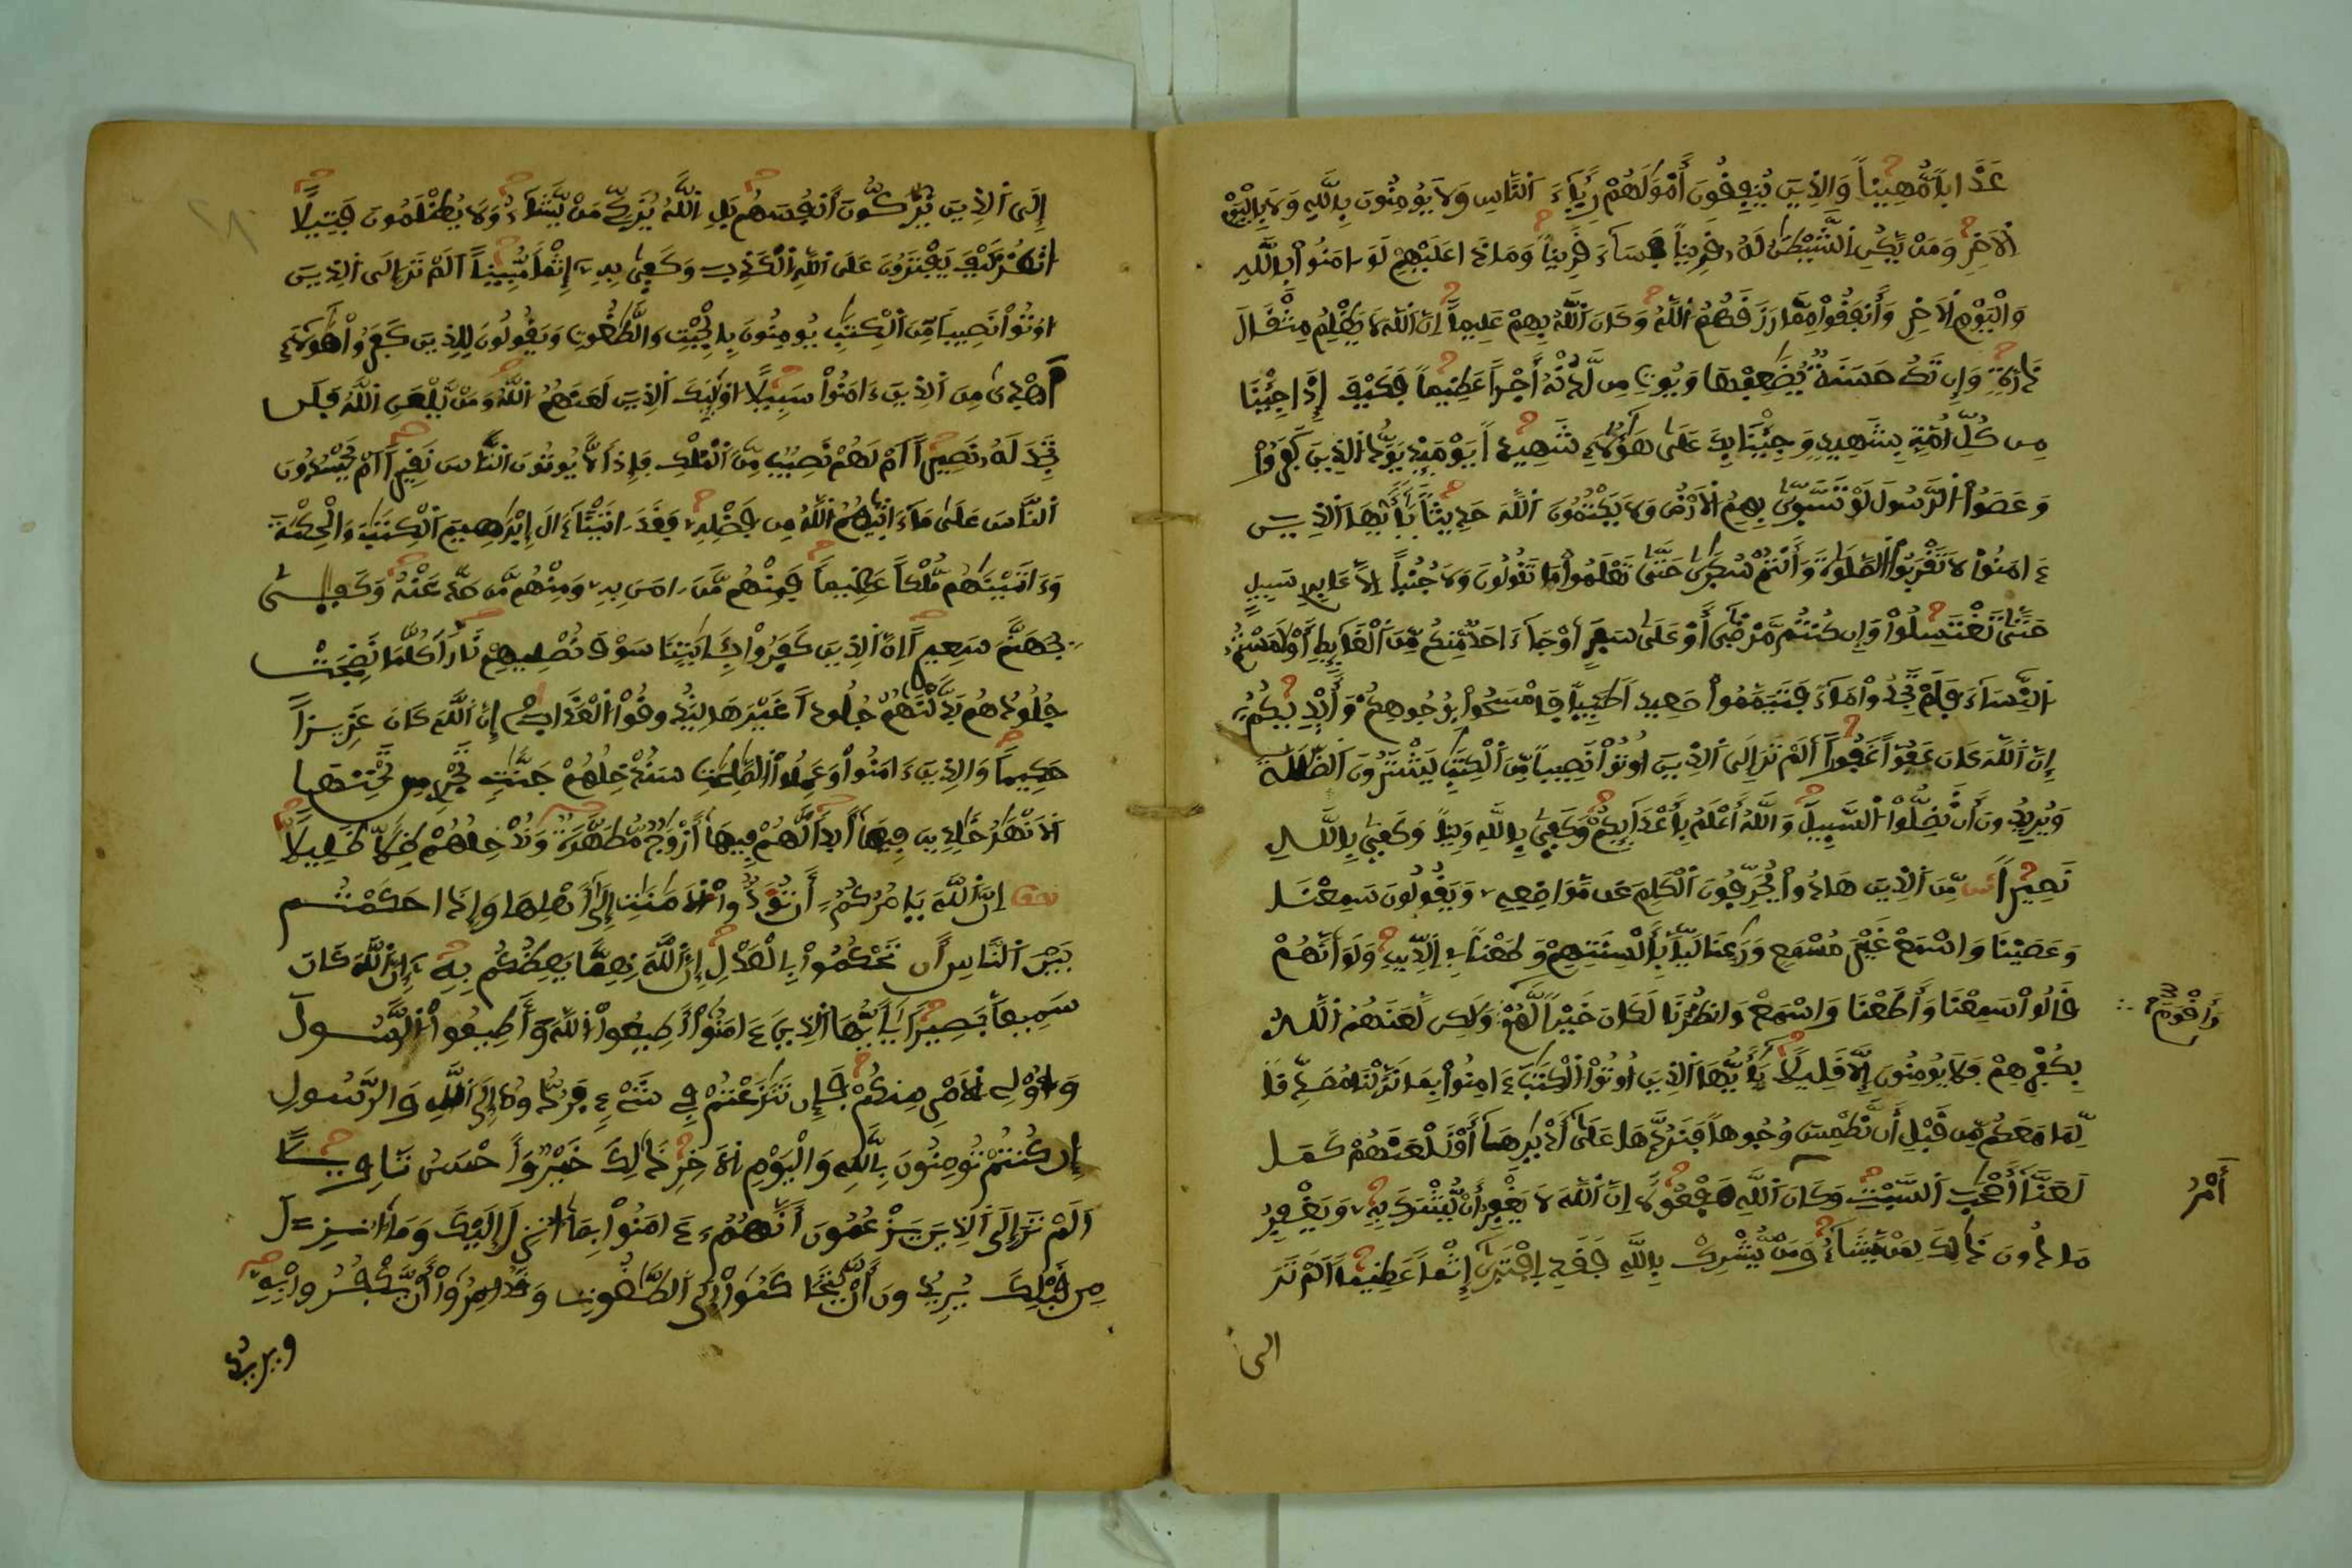 عَذَابًا مُّهِينًا وَالذِينَ يُنفِقُونَ أَمْوَٰلَهُمْ رِئَآءَ اَلنَّاسِ وَلَا يُومِنُونَ بِاللَّهِ وَلَا بِالْيَوْمِ
اِلَاخِرِ وَمَنْ يَّكُنِ اِلشَّيْطَٰنُ لَهُۥ قَرِينًا فَسَآءَ قَرِينًا وَمَاذَا عَلَيْهِمْ لَوَ ـامَنُواْ بِاللَّهِ
وَالْيَوْمِ اِلَاخِرِ وَأَنفَقُواْ مِمَّا رَزَقَهُمُ اُللَّهُ وَكَانَ اَللَّهُ بِهِمْ عَلِيمًا اِنَّ اَللَّهَ لَا يَظْلِمُ مِثْقَالَ
ذَرَّةٍ وَإِن تَكُ حَسَنَةٌ يُضَٰعِفْهَا وَيُوتِ مِن لَّدُنْهُ أَجْرًا عَظِيمًا فَكَيْفَ إِذَا جِئْنَا
مِن كُلِّ أُمَّةٍ بِشَهِيدٍ وَجِئْنَا بِكَ عَلَىٰ هَٰٓؤُلَآءِ شَهِيدًا يَوْمَئِذٍ يَوَدُّ اُلذِينَ كَفَرُواْ
وَعَصَوُاْ اُلرَّسُولَ لَوْ تَسَّوَّىٰ بِهِمُ اُلَارْضُ وَلَا يَكْتُمُونَ اَللَّهَ حَدِيثًا يَٰٓأَيُّهَا اَلذِينَ
ءَامَنُواْ لَا تَقْرَبُواْ اُلصَّلَوٰةَ وَأَنتُمْ سُكَٰرَىٰ حَتَّىٰ تَعْلَمُواْ مَا تَقُولُونَ وَلَا جُنُبًا اِلَّا عَابِرِي سَبِيلٍ
حَتَّىٰ تَغْتَسِلُواْ وَإِن كُنتُم مَّرْضَىٰٓ أَوْ عَلَىٰ سَفَرٍ اَوْ جَآءَ احَدٌ مِّنكُم مِّنَ اَلْغَآئِطِ أَوْ لَٰمَسْتُمُ
اُلنِّسَآءَ فَلَمْ تَجِدُواْ مَآءً فَتَيَمَّمُواْ صَعِيدًا طَيِّبًا فَامْسَحُواْ بِوُجُوهِكُمْ وَأَيْدِيكُمُۥٓ
إِنَّ اَللَّهَ كَانَ عَفُوًّا غَفُورًا أَلَمْ تَرَ إِلَى اَلذِينَ أُوتُواْ نَصِيبًا مِّنَ اَلْكِتَٰبِ يَشْتَرُونَ اَلضَّلَٰلَةَ
وَيُرِيدُونَ أَن تَضِلُّواْ اُلسَّبِيلَ وَاللَّهُ أَعْلَمُ بِأَعْدَآئِكُمْ وَكَفَىٰ بِاللَّهِ وَلِيًّا وَكَفَىٰ بِاللَّهِ
نَصِيرًا مِّنَ اَلذِينَ هَادُواْ يُحَرِّفُونَ اَلْكَلِمَ عَن مَّوَاضِعِهِۦ وَيَقُولُونَ سَمِعْنَا
وَعَصَيْنَا وَاسْمَعْ غَيْرَ مُسْمَعٍ وَرَٰعِنَا لَيًّا بِأَلْسِنَتِهِمْ وَطَعْنًا فِي اِلدِّينِ وَلَوَ اَنَّهُمْ
قَالُواْ سَمِعْنَا وَأَطَعْنَا وَاسْمَعْ وَانظُرْنَا لَكَانَ خَيْرًا لَّهُمْ وَلَٰكِن لَّعَنَهُمُ اُللَّهُ
وَأَقْوَمَ
بِكُفْرِهِمْ فَلَا يُومِنُونَ إِلَّا قَلِيلًا يَٰٓأَيُّهَا اَلذِينَ أُوتُواْ اُلْكِتَٰبَ ءَامِنُواْ بِمَا نَزَّلْنَا مُصَدِّقًا
لِّمَا مَعَكُم مِّن قَبْلِ أَن نَّطْمِسَ وُجُوهًا فَنَرُدَّهَا عَلَىٰٓ أَدْبَٰرِهَآ أَوْ نَلْعَنَهُمْ كَمَا
لَعَنَّآ أَصْحَٰبَ اَلسَّبْتِ وَكَانَ اَللَّهِ مَفْعُولًا اِنَّ اَللَّهَ لَا يَغْفِرُ أَنْ يُّشْرَكَ بِهِۦ وَيَغْفِرُ
أَمْرُ
مَا دُونَ ذَٰلِكَ لِمَنْ يَّشَآءُ وَمَنْ يُّشْرِكْ بِاللَّهِ فَقَدِ اِفْتَرَىٰٓ إِثْمًا عَظِيمًا اَلَمْ تَرَ
الى
إِلَى اَلذِينَ يُزَكُّونَ أَنفُسَهُم بَلِ اِللَّهُ يُزَكِّي مَنْ يَّشَآءُ وَلَا يُظْلَمُونَ فَتِيلًا
اَنظُرْ كَيْفَ يَفْتَرُونَ عَلَى اَللَّهِ اِلْكَذِبَ وَكَفَىٰ بِهِۦٓ إِثْمًا مُّبِينًا اَلَمْ تَرَ إِلَى اَلذِينَ
أُوتُواْ نَصِيبًا مِّنَ اَلْكِتَٰبِ يُومِنُونَ بِالْجِبْتِ وَالطَّٰغُوتِ وَيَقُولُونَ لِلذِينَ كَفَرُواْ هَٰٓؤُلَآءِ
أَهْدَىٰ مِنَ اَلذِينَ ءَامَنُواْ سَبِيلًا اُوْلَٰٓئِكَ اَلذِينَ لَعَنَهُمُ اُللَّهُ وَمَنْ يَّلْعَنِ اِللَّهُ فَلَن
تَجِدَ لَهُۥ نَصِيرًا اَمْ لَهُمْ نَصِيبٌ مِّنَ اَلْمُلْكِ فَإِذًا لَّا يُوتُونَ اَلنَّاسَ نَقِيرًا اَمْ يَحْسُدُونَ
اَلنَّاسَ عَلَىٰ مَآ ءَاتَىٰهُمُ اُللَّهُ مِن فَضْلِهِۦ فَقَدَ ـاتَيْنَآ ءَالَ إِبْرَٰهِيمَ اَلْكِتَٰبَ وَالْحِكْمَةَ
وَءَاتَيْنَٰهُم مُّلْكًا عَظِيمًا فَمِنْهُم مَّنَ ـامَنَ بِهِۦ وَمِنْهُم مَّن صَدَّ عَنْهُ وَكَفَىٰ
بِجَهَنَّمَ سَعِيرًا اِنَّ اَلذِينَ كَفَرُواْ بِـَٔايَٰتِنَا سَوْفَ نُصْلِيهِمْ نَارًا كُلَّمَا نَضِجَتْ
جُلُودُهُم بَدَّلْنَٰهُمْ جُلُودًا غَيْرَهَا لِيَذُوقُواْ اُلْعَذَابَ إِنَّ اَللَّهَ كَانَ عَزِيزًا
حَكِيمًا وَالذِينَ ءَامَنُواْ وَعَمِلُواْ اُلصَّٰلِحَٰتِ سَنُدْخِلُهُمْ جَنَّٰتٍ تَجْرِي مِن تَحْتِهَا
اَلَانْهَٰرُ خَٰلِدِينَ فِيهَآ أَبَدًا لَّهُمْ فِيهَآ أَزْوَٰجٌ مُّطَهَّرَةٌ وَنُدْخِلُهُمْ ظِلًّا ظَلِيلًا
اِنَّ اَللَّهَ يَامُرُكُمُۥٓ أَن تُؤَدُّواْ اُلَامَٰنَٰتِ إِلَىٰٓ أَهْلِهَا وَإِذَا حَكَمْتُم
بَيْنَ اَلنَّاسِ أَن تَحْكُمُواْ بِالْعَدْلِ إِنَّ اَللَّهَ نِعِمَّا يَعِظُكُم بِهِۦٓ إِنَّ اَللَّهَ كَانَ
سَمِيعًا بَصِيرًا يَٰٓأَيُّهَا اَلذِينَ ءَامَنُوٓاْ أَطِيعُواْ اُللَّهَ وَأَطِيعُواْ اُلرَّسُولَ
وَأُوْلِي اِلَامْرِ مِنكُمْ فَإِن تَنَٰزَعْتُمْ فِي شَےْءٍ فَرُدُّوهُ إِلَى اَللَّهِ وَالرَّسُولِ
إِن كُنتُمْ تُومِنُونَ بِاللَّهِ وَالْيَوْمِ اِلَاخِرِ ذَٰلِكَ خَيْرٌ وَأَحْسَنُ تَاوِيلًا
اَلَمْ تَرَ إِلَى اَلذِينَ يَزْعُمُونَ أَنَّهُمُۥٓ ءَامَنُواْ بِمَآ أُنزِلَ إِلَيْكَ وَمَآ أُنزِلَ
مِن قَبْلِكَ يُرِيدُونَ أَنْ يَّتَحَاكَمُوٓاْ إِلَى اَلطَّٰغُوتِ وَقَدُ امِرُوٓاْ أَنْ يَّكْفُرُواْ بِهِۦ
ويريد